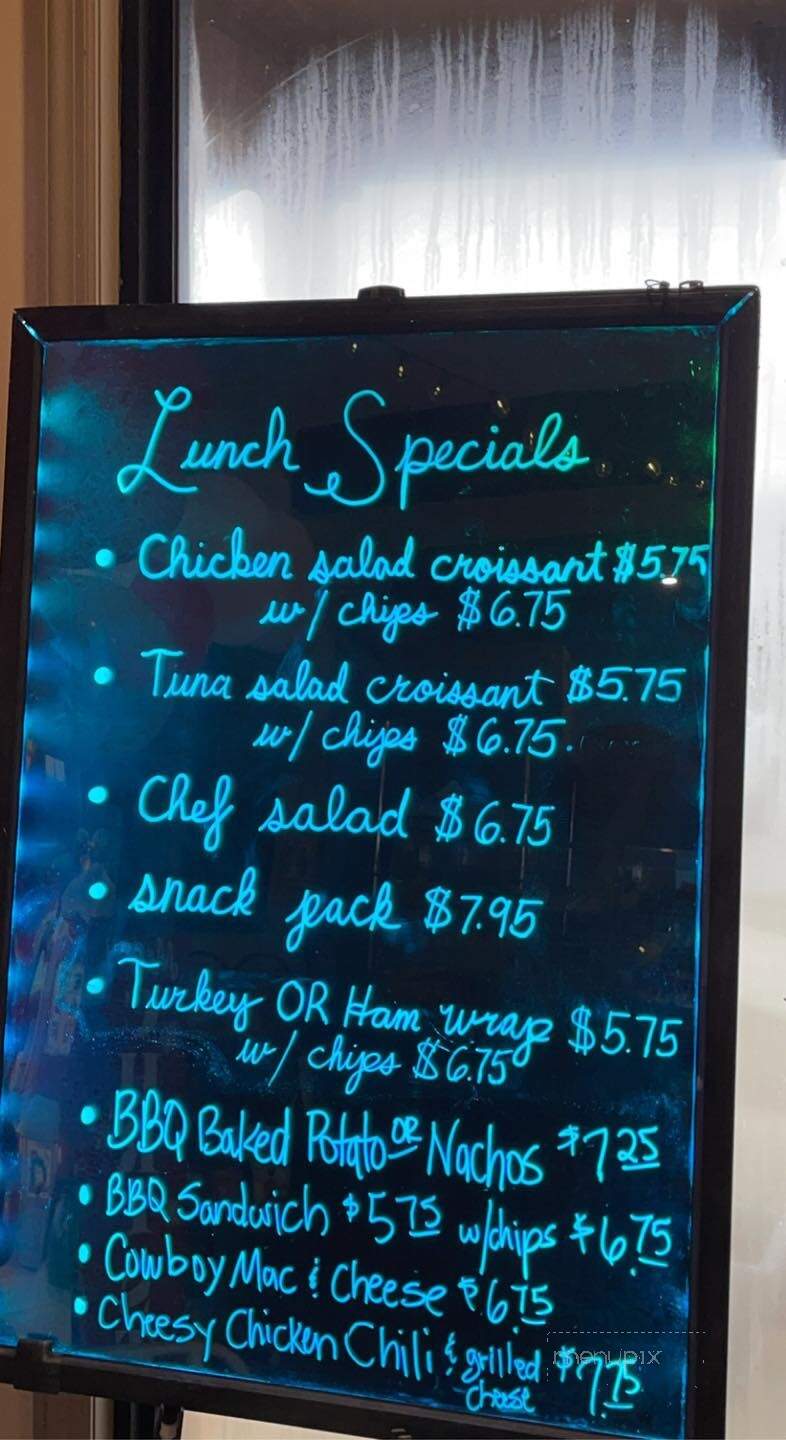 Lunch Specials
• Chicken salad croissant $5.75
w/ chips $6.75
• Tuna salad croissant $5.75
w/ chips $6.75.
• Chef salad $6.75
• snack pack $7.95
• Turkey OR Ham wrap $5.75
w/ chips $6.75
• BBQ Baked Potato OR Nachos $7.25
• BBQ Sandwich $5.75 w/chips $6.75
• Cowboy Mac & Cheese $6.75
• Cheesy Chicken Chili & grilled $7.75
cheese
menupix